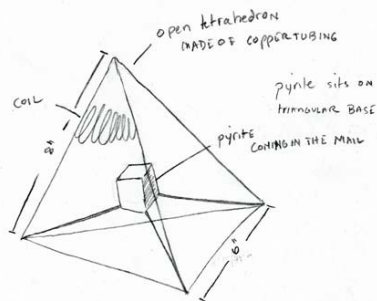 open tetrahedron
MADE OF COPPER TUBING
pyrite sits on
TRIANGULAR BASE
COIL
pyrite
COMING IN THE MAIL
6"